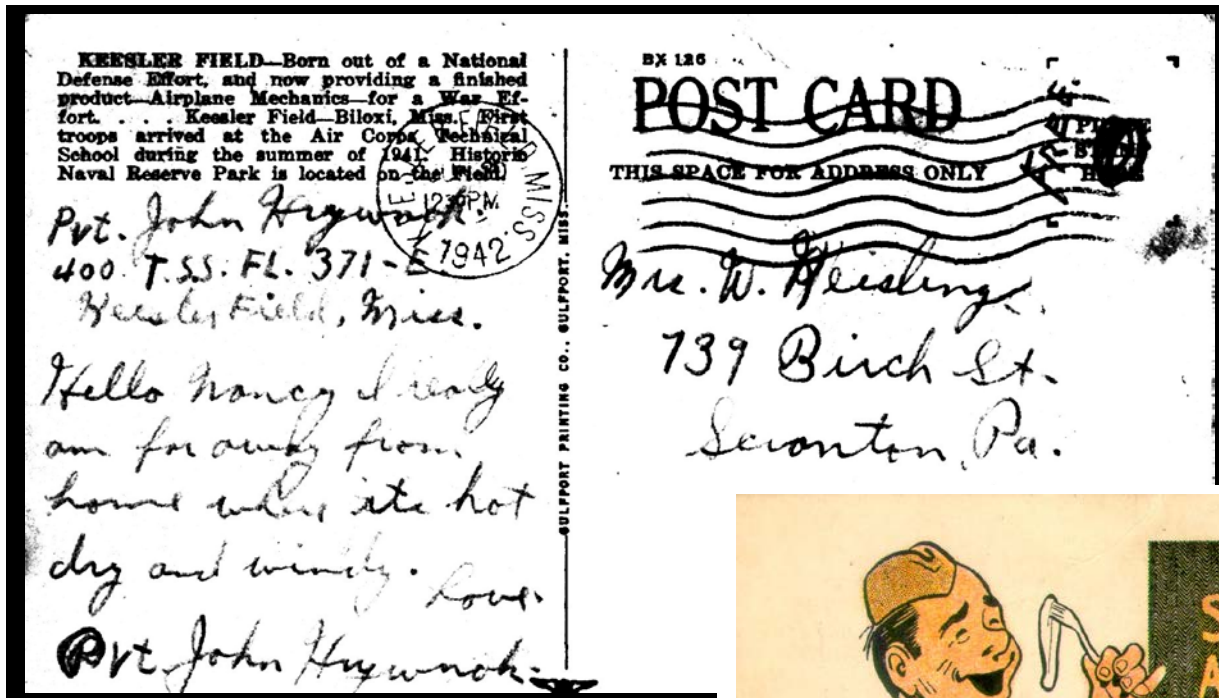 KEESLER FIELD—Born out of a National
Defense Effort, and now providing a finished
product—Airplane Mechanics—for a War Ef-
fort. . . . Keesler Field—Biloxi, Miss. First
troops arrived at the Air Corps Technical
School during the summer of 1941. Historic
Naval Reserve Park is located on the Field.
Pvt. John Hrywnak.
400 T.S.S. FL. 371-E
Keesler Field, Miss.
Hello Nancy I really
am far away from
home where its hot
dry and windy.
Love.
Pvt John Hrywnak-
MISS.
1942
GULFPORT PRINTING CO., GULFPORT, MISS.
BX 126
POST CARD
THIS SPACE FOR ADDRESS ONLY
Free
Mrs. W. Keisling
739 Birch St.
Scranton, Pa.